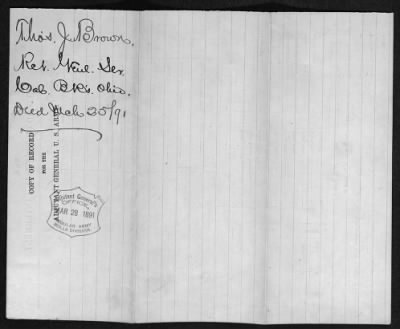 Thos. J. Brown,
Ret. Genl. Ser.
Col. Bks. Ohio.
Died Feb 25/91
COPY OF RECORD
FOR THE
ADJUTANT GENERAL U. S. ARMY
Adjutant General's
OFFICE,
MAR 28 1891
REGULAR ARMY
ROLLS DIVISION